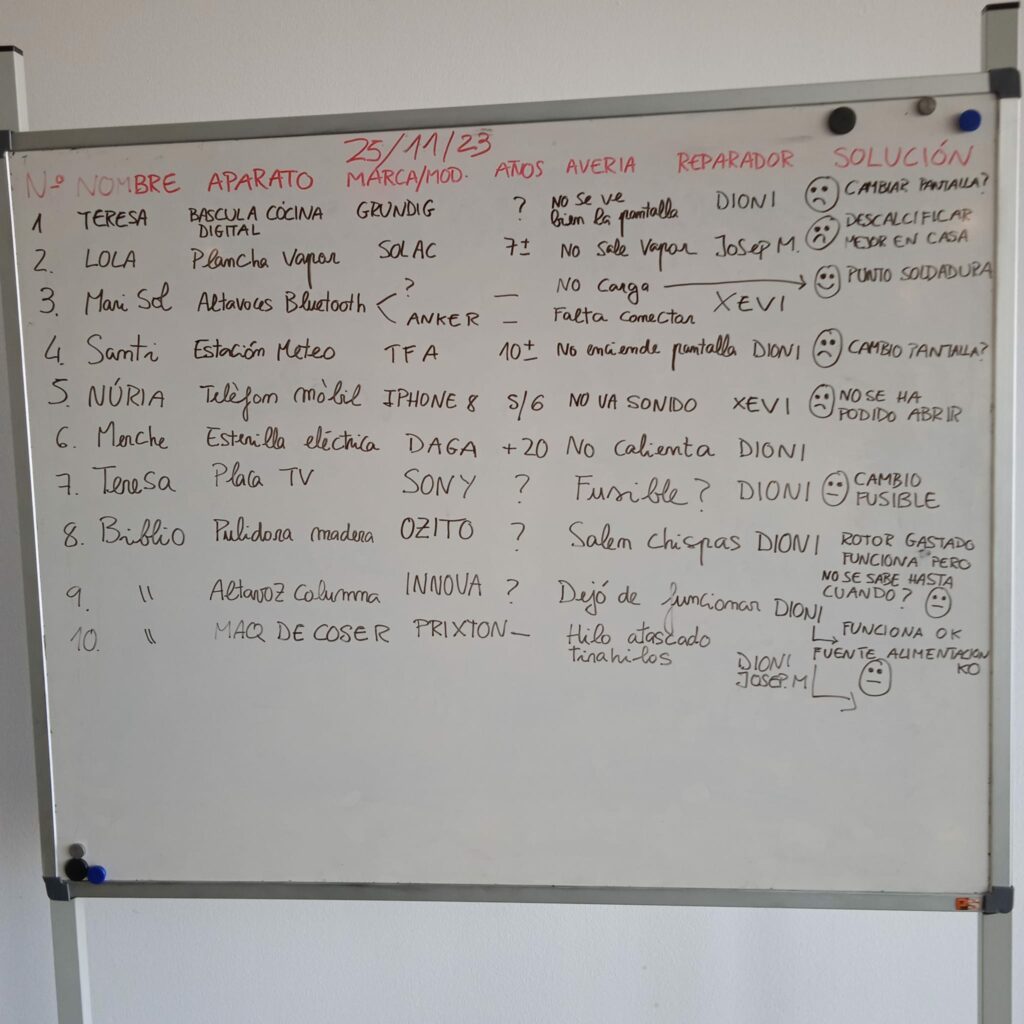 25/11/23
Nº NOMBRE APARATO MARCA/MOD. AÑOS AVERIA REPARADOR SOLUCIÓN
1 TERESA BASCULA COCINA DIGITAL GRUNDIG ? NO SE VE bien la pantalla DIONI CAMBIAR PANTALLA?
2. LOLA Plancha Vapor SOLAC 7± No sale Vapor JOSEP M. DESCALCIFICAR MEJOR EN CASA
3. Mari Sol Altavoces Bluetooth ? — No Carga PUNTO SOLDADURA
ANKER — Falta conectar XEVI
4. Santi Estación Meteo TFA 10± No enciende pantalla DIONI CAMBIO PANTALLA?
5. NÚRIA Telèfon mòbil IPHONE 8 5/6 NO VA SONIDO XEVI NO SE HA PODIDO ABRIR
6. Merche Esterilla eléctrica DAGA +20 No calienta DIONI
7. Teresa Placa TV SONY ? Fusible? DIONI CAMBIO FUSIBLE
8. Biblio Pulidora madera OZITO ? Salen chispas DIONI ROTOR GASTADO FUNCIONA PERO NO SE SABE HASTA CUANDO?
9. " Altavoz Columna INNOVA ? Dejó de funcionar DIONI FUNCIONA OK FUENTE ALIMENTACION KO
10. " MAQ DE COSER PRIXTON — Hilo atascado tirahilos DIONI JOSEP. M